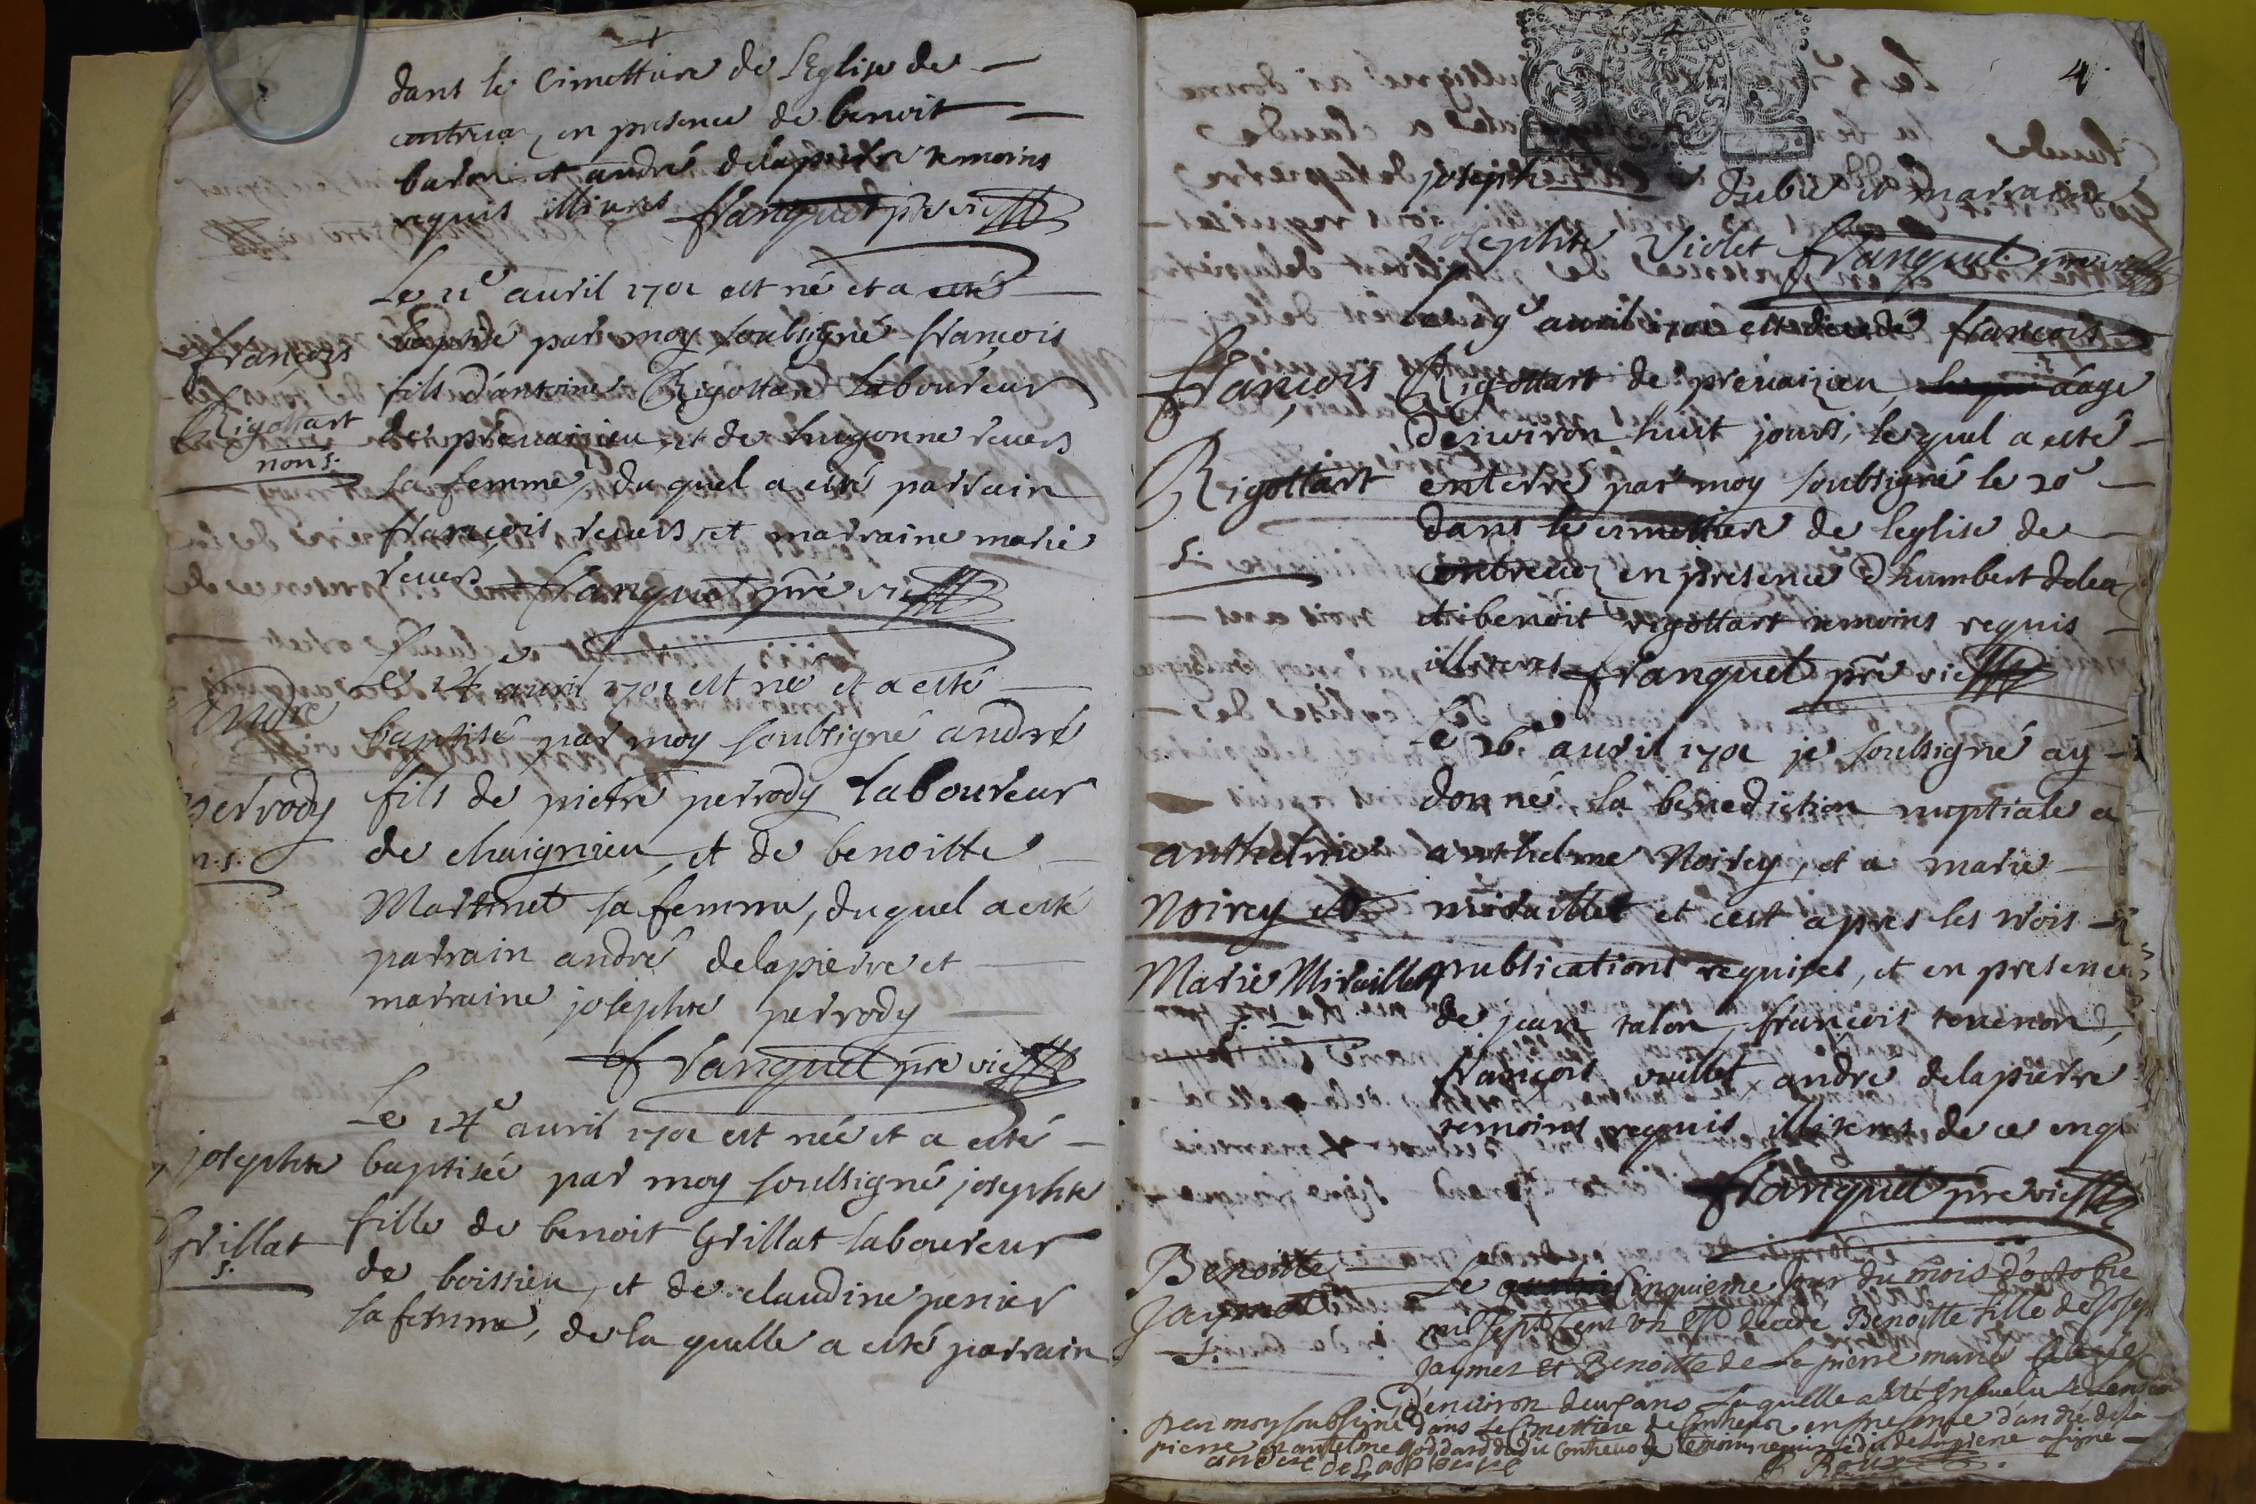 dans le Cimettiere de L'Eglise de
contreuoz, en presence de benoit
baron et andré delapierre temoins
requis illiterés franquet pre vic
Le 11e auril 1701 est né et a esté
baptisé par moy soubsigné françois
fils d'antoine Rigottart laboureur
de preuaizieu, et de hugonne reuers
sa femme, du quel a esté parrain
françois reuers, et marraine marie
reuers franquet pre vic
françois
Rigottart
non s.
Le 14e auril 1701 est né et a esté
baptisé par moy soubsigné andré
fils de pierre perrody laboureur
de chaignieu, et de benoitte
Martinet sa femme, duquel a esté
parrain andré delapierre et
marraine josephte perrody
franquet pre vic
andre
perrody
n.s.
Le 14e auril 1701 est née et a esté
baptisée par moy soubsigné josephte
fille de benoit Grillat laboureur
de boissieu, et de claudine perier
sa femme, de la quelle a esté parrain
josephte
Grillat
s.
4.
joseph dubie et marraine
josephte Violet franquet pre vic
Le 19e auril 1701 est decedé françois
Rigottart de preuaizieu, aagé
d'enuiron huit jours, le quel a esté
enterré par moy soubsigné le 20e
dans le cimettiere de leglise de
contreuoz en presence d'humbert delea
et benoit rigottart temoins requis
illiterés franquet pre vic
françois
Rigottart
s.
Le 26e auril 1701 je soubsigné ay
donné la benediction nuptiale a
anthelme Noirey, et a marie
miraillet et cest apres les trois
publications requises, et en presence
de jean talon, françois teuenon,
françois vuillet, andre delapierre
temoins requis illiterés de ce enq
franquet pre vic
anthelme
Noirey et
Marie Miraillet
s.
Le cinquieme jour du mois d'octobre
mil sept cent vn est decede Benoitte fille de Josep
Jaymet et Benoitte de La pierre mariés
d'enuiron deux ans Laquelle a esté enseuelie Le lendem
par moy soubsigné dans Le Cimettiere de Contreuoz en presence d'andré de la
pierre et antelme goddard dudit Contreuoz temoins requis Ledit delapierre a signé
andre de Lapierre
Benoitte
Jaymet
s.